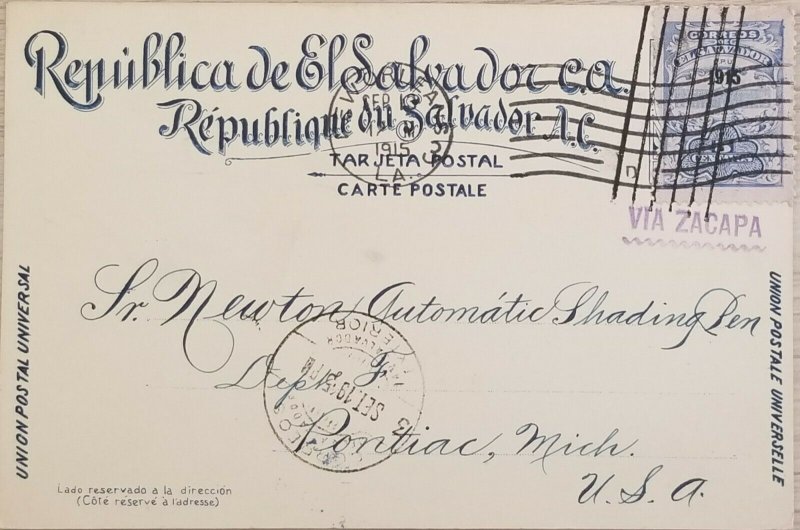 República de El Salvador C.A.
République du Salvador A.C.
TARJETA POSTAL
CARTE POSTALE
CORREOS
EL SALVADOR
1915
SEP
1915
LA
VIA ZACAPA
UNION POSTAL UNIVERSAL
UNION POSTALE UNIVERSELLE
Sr. Newton Automátic Shading Pen
Dept. F.
Pontiac, Mich.
U. S. A.
EXTERIOR
SALVADOR
SET. 1915
13
Lado reservado a la dirección
(Côté reservé à l'adresse)